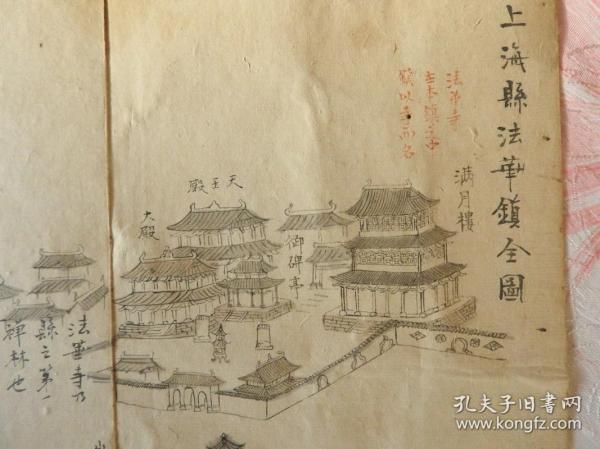 上海縣法華鎮全圖
法華寺
鎮以寺而名
滿月樓
天王殿
大殿
御碑亭
法華寺乃
縣之第一
禪林也
孔夫子旧書网
www.kongfz.com